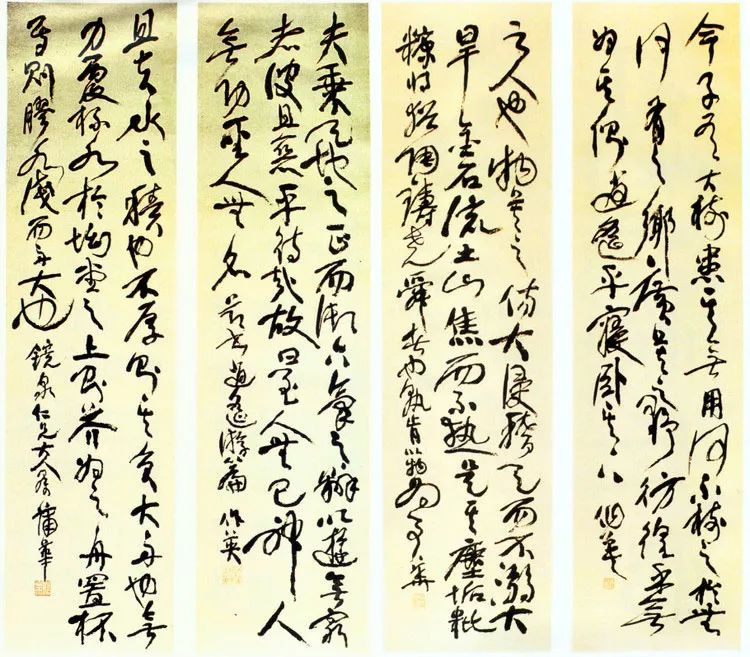 今子有大樹患其無用何不樹之於無
何有之鄉廣莫之野彷徨乎無
為其側逍遙乎寢臥其下
之人也物莫之傷大浸稽天而不溺大
旱金石流土山焦而不熱是其塵垢粃
糠將猶陶鑄堯舜者也孰肯以物為事 華
夫乘天地之正而御六氣之辯以遊無窮
者彼且惡乎待哉故曰至人無己神人
無功聖人無名 書逍遙游篇 作英
且夫水之積也不厚則其負大舟也無
力覆杯水於坳堂之上則芥為之舟置杯
焉則膠水淺而舟大也 鏡泉仁兄大人屬 蒲華